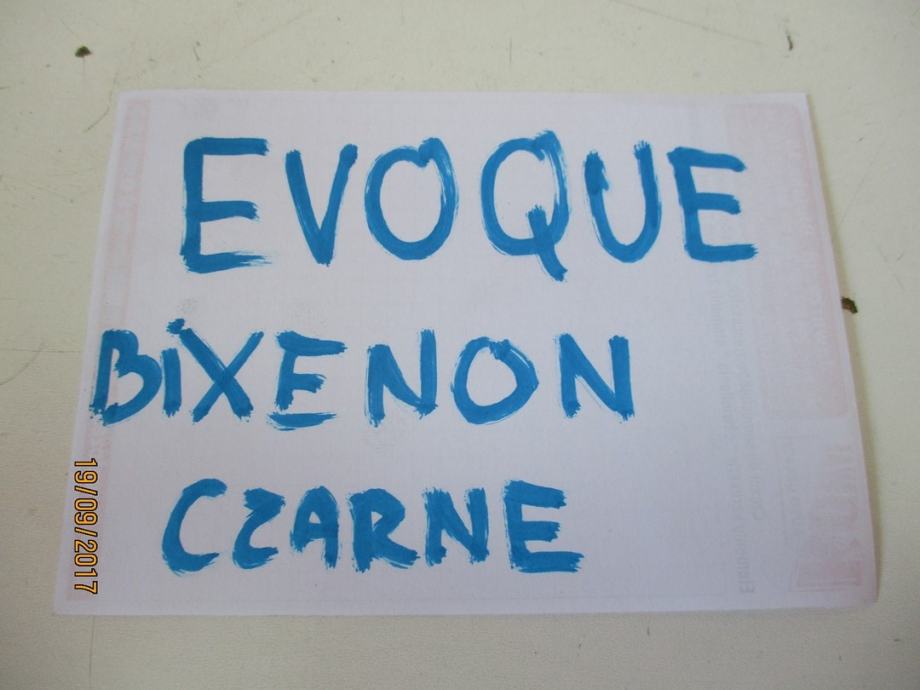 EVOQUE
BiXENON
CZARNE
19/09/2017